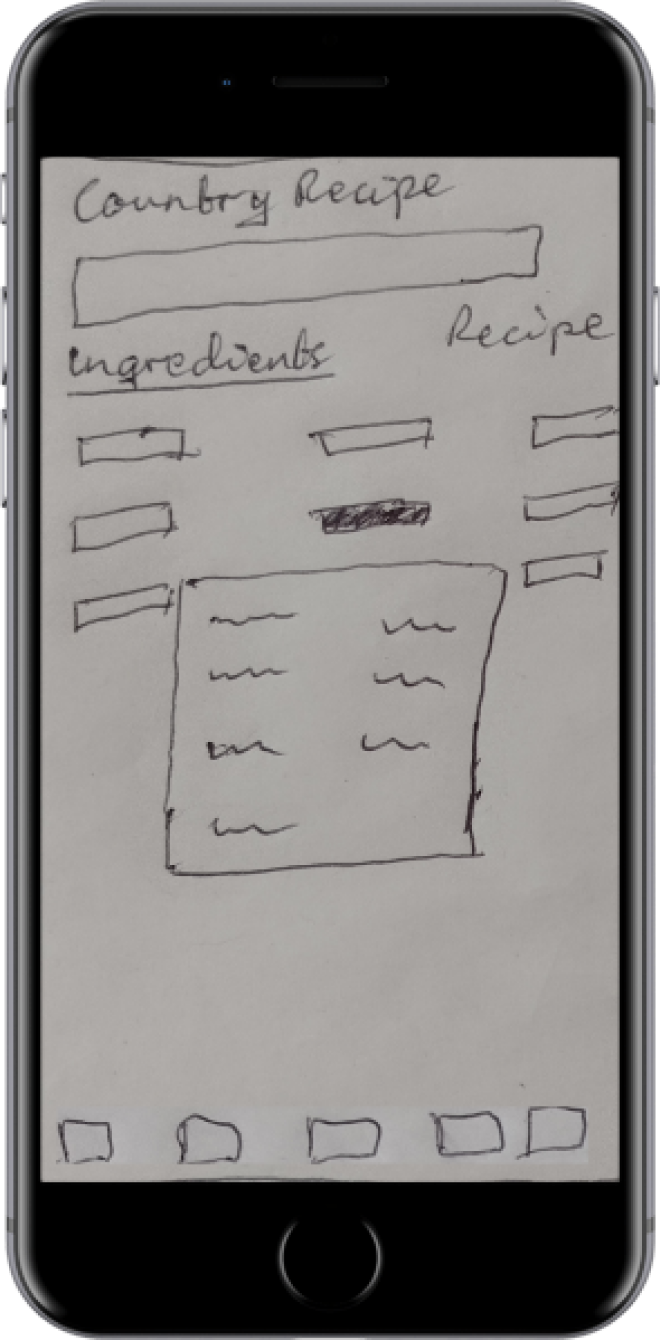 Country Recipe
Ingredients
Recipe